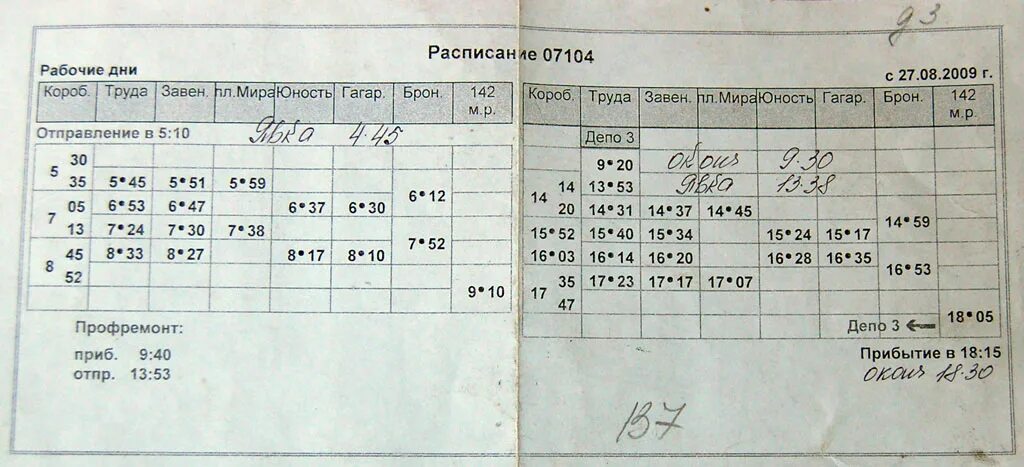 д3
Расписание 07104
Рабочие дни
с 27.08.2009 г.
Короб. Труда Завен. пл.Мира Юность Гагар. Брон. 142 м.р.
Отправление в 5:10 Явка 4.45
5 30
35 5•45 5•51 5•59
6•12
7 05 6•53 6•47 6•37 6•30
13 7•24 7•30 7•38
7•52
8 45 8•33 8•27 8•17 8•10
52
9•10
Профремонт:
приб. 9:40
отпр. 13:53
Короб. Труда Завен. пл.Мира Юность Гагар. Брон. 142 м.р.
Депо 3
9•20 окон 9.30
14 14 13•53 Явка 13.38
20 14•31 14•37 14•45
14•59
15•52 15•40 15•34 15•24 15•17
16•03 16•14 16•20 16•28 16•35
16•53
17 35 17•23 17•17 17•07
47
18•05
Депо 3 ←
Прибытие в 18:15
окон 18.30
137